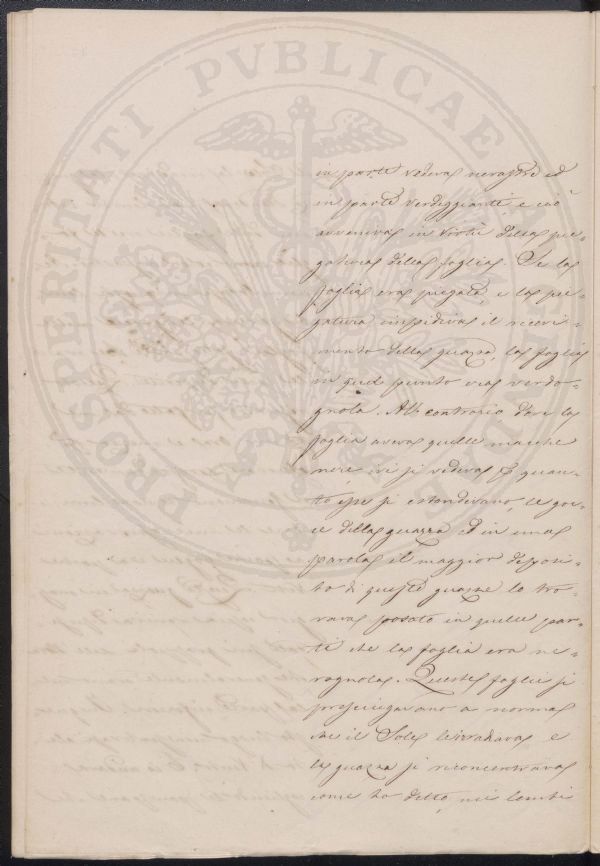 PROSPERITATI PVBLICAE
in parte vedeva nerastre ed
in parte verdeggiante, e ciò
avveniva in virtù della pie-
gatura della foglia. Se la
foglia era piegata, e la pie-
gatura impediva il ricevi-
mento della guazza, la foglia
in quel punto era verdo-
gnola. Al contrario dove la
foglia aveva quelle macchie
nere, ivi si vedeva per quan-
to esse si estendevano, le goc-
cie della guazza, ed in una
parola il maggior deposi-
to di queste guazze lo tro-
vava posato in quelle par-
ti che la foglia era ne-
rognola. Queste foglie si
prosciugavano a norma
che il Sole le irradiava, e
la guazza si riconcentrava
come ho detto, nei lembi